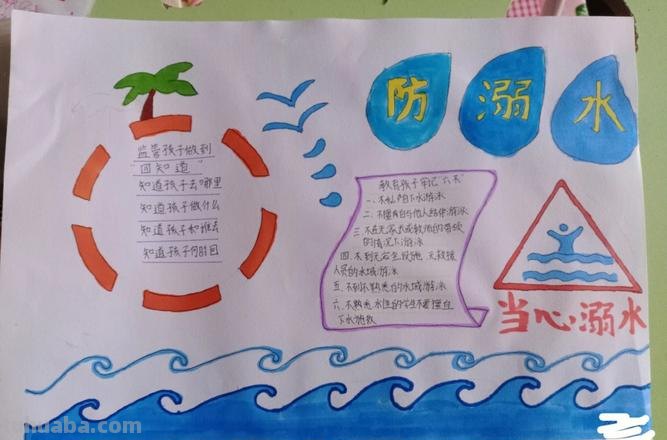 防溺水
监管孩子做到
"四知道"
知道孩子去哪里
知道孩子做什么
知道孩子和谁去
知道孩子何时回
教育孩子牢记"六不"
一、不私自下水游泳
二、不擅自与他人结伴游泳
三、不在无家长或教师的带领
的情况下游泳
四、不到无安全设施、无救援
人员的水域游泳
五、不到不熟悉的水域游泳
六、不熟悉水性的学生不要擅自
下水施救
当心溺水
huaba.com